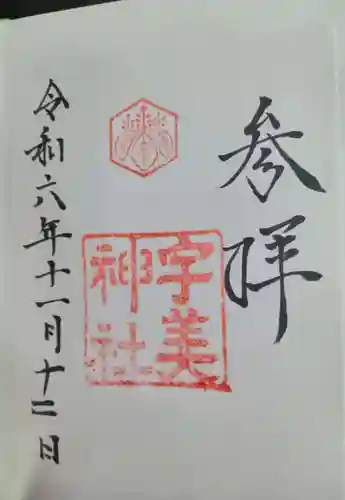 参拝
宇美
神社
令和六年十一月十二日